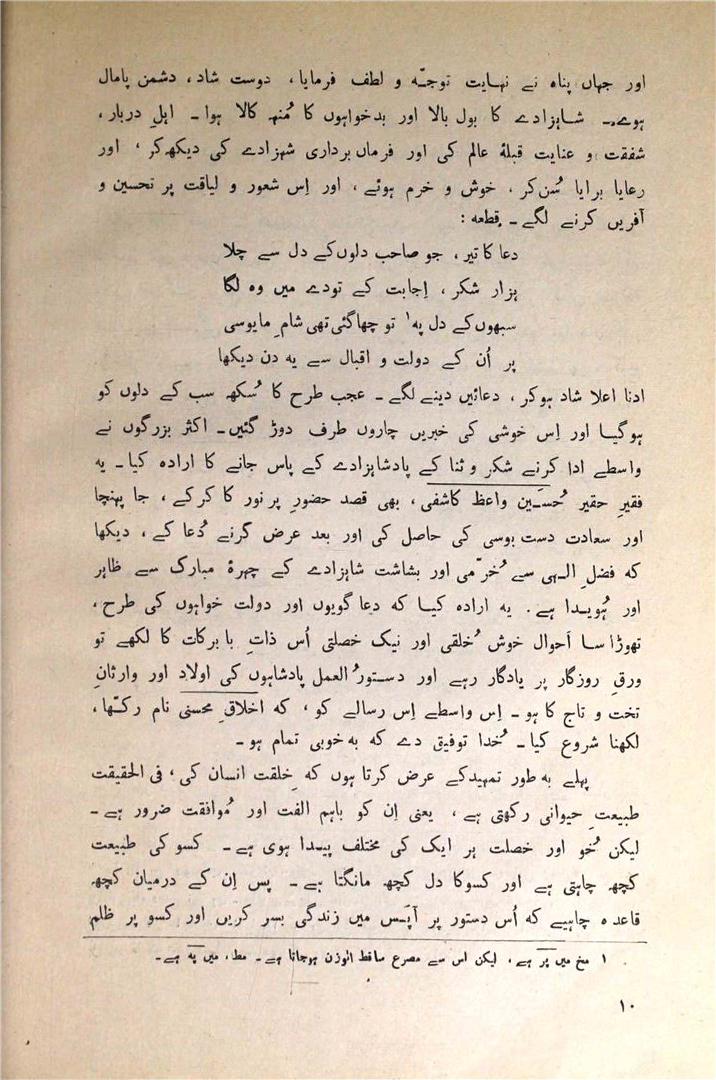 اور جہاں پناہ نے نہایت توجہّ و لطف فرمایا، دوست شاد، دشمن پامال
ہوے۔ شاہزادے کا بول بالا اور بدخواہوں کا مُنہ کالا ہوا۔ اہلِ دربار،
شفقت و عنایت قبلۂ عالم کی اور فرماں برداری شہزادے کی دیکھ کر، اور
رعایا برایا سُن کر، خوش و خرم ہوئے، اور اِس شعور و لیاقت پر تحسین و
آفریں کرنے لگے۔ قطعہ:
دعا کا تیر، جو صاحب دلوں کے دل سے چلا
ہزار شکر، اِجابت کے تودے میں وہ لگا
سبھوں کے دل پہ۱ تو چھا گئی تھی شامِ مایوسی
پر اُن کے دولت و اقبال سے یہ دن دیکھا
ادنا اعلا شاد ہوکر، دعائیں دینے لگے۔ عجب طرح کا سُکھ سب کے دلوں کو
ہوگیا اور اِس خوشی کی خبریں چاروں طرف دوڑ گئیں۔ اکثر بزرگوں نے
واسطے ادا کرنے شکر و ثنا کے پادشاہزادے کے پاس جانے کا ارادہ کیا۔ یہ
فقیرِ حقیر حُسَین واعظ کاشفی، بھی قصد حضورِ پر نور کا کرکے، جا پہنچا
اور سعادت دست بوسی کی حاصل کی اور بعد عرض کرنے دُعا کے، دیکھا
کہ فضلِ الٰہی سے خُرّمی اور بشاشت شاہزادے کے چہرۂ مبارک سے ظاہر
اور ہُویدا ہے۔ یہ ارادہ کیا کہ دعا گویوں اور دولت خواہوں کی طرح،
تھوڑا سا اَحوال خوش خُلقی اور نیک خصلتی اُس ذاتِ با برکات کا لکھے تو
ورقِ روزگار پر یادگار رہے اور دستورُ العمل پادشاہوں کی اولاد اور وارثانِ
تخت و تاج کا ہو۔ اِس واسطے اِس رسالے کو، کہ اخلاقِ محسنی نام رکھّا،
لکھنا شروع کیا۔ خُدا توفیق دے کہ بہ خوبی تمام ہو۔
پہلے بہ طور تمہید کے عرض کرتا ہوں کہ خِلقت انسان کی، فی الحقیقت
طبیعتِ حیوانی رکھتی ہے، یعنی اِن کو باہم الفت اور مُوافقت ضرور ہے۔
لیکن خُو اور خصلت ہر ایک کی مختلف پیدا ہوی ہے۔ کسو کی طبیعت
کچھ چاہتی ہے اور کسو کا دل کچھ مانگتا ہے۔ پس اِن کے درمیان کچھ
قاعدہ چاہیے کہ اُس دستور پر آپَس میں زندگی بسر کریں اور کسو پر ظلم
۱ مخ میں پر ہے، لیکن اس سے مصرع ساقط الوزن ہوجاتا ہے۔ مط، میں پہ ہے۔
۱۰